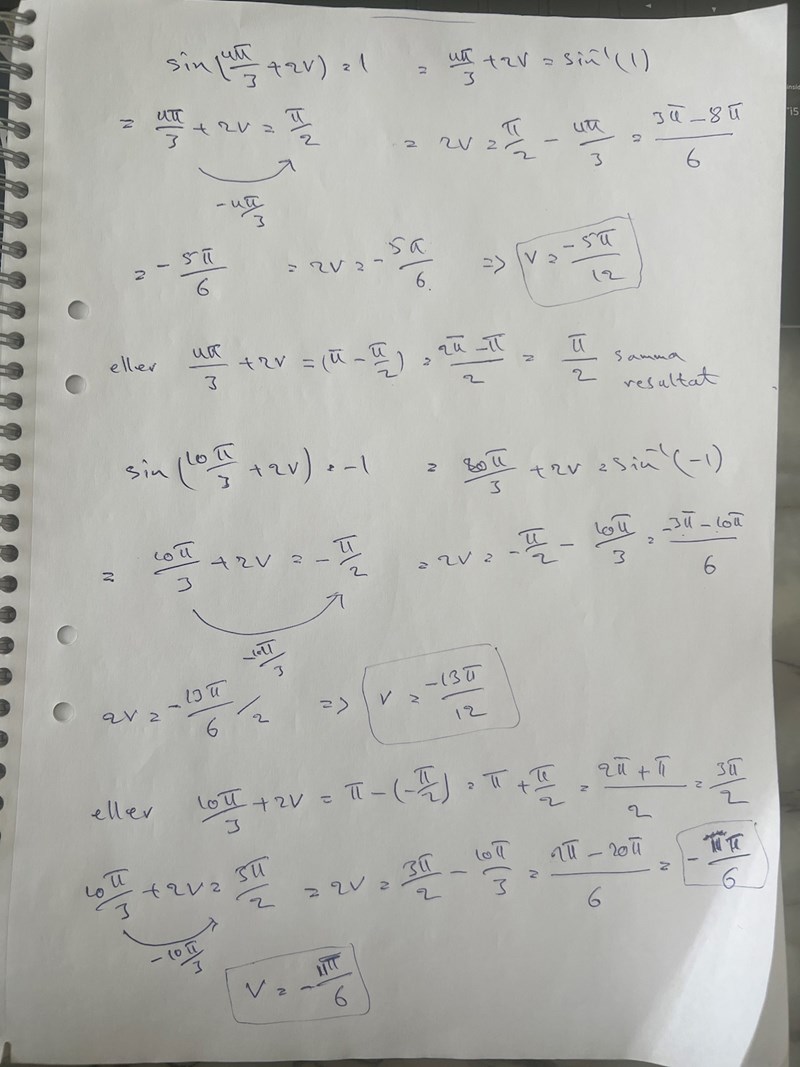 sin(4π/3 + 2v) = 1 = 4π/3 + 2v = sin⁻¹(1)
= 4π/3 + 2v = π/2 = 2v = π/2 - 4π/3 = (3π - 8π)/6
-4π/3
= -5π/6 = 2v = -5π/6 => v = -5π/12
eller 4π/3 + 2v = (π - π/2) = (2π - π)/2 = π/2 samma
resultat
sin(10π/3 + 2v) = -1 = 10π/3 + 2v = sin⁻¹(-1)
= 10π/3 + 2v = -π/2 = 2v = -π/2 - 10π/3 = (-3π - 10π)/6
-10π/3
2v = -13π/6 /2 => v = -13π/12
eller 10π/3 + 2v = π - (-π/2) = π + π/2 = (2π + π)/2 = 3π/2
10π/3 + 2v = 3π/2 = 2v = 3π/2 - 10π/3 = (9π - 20π)/6 = -11π/6
-10π/3
v = -11π/6